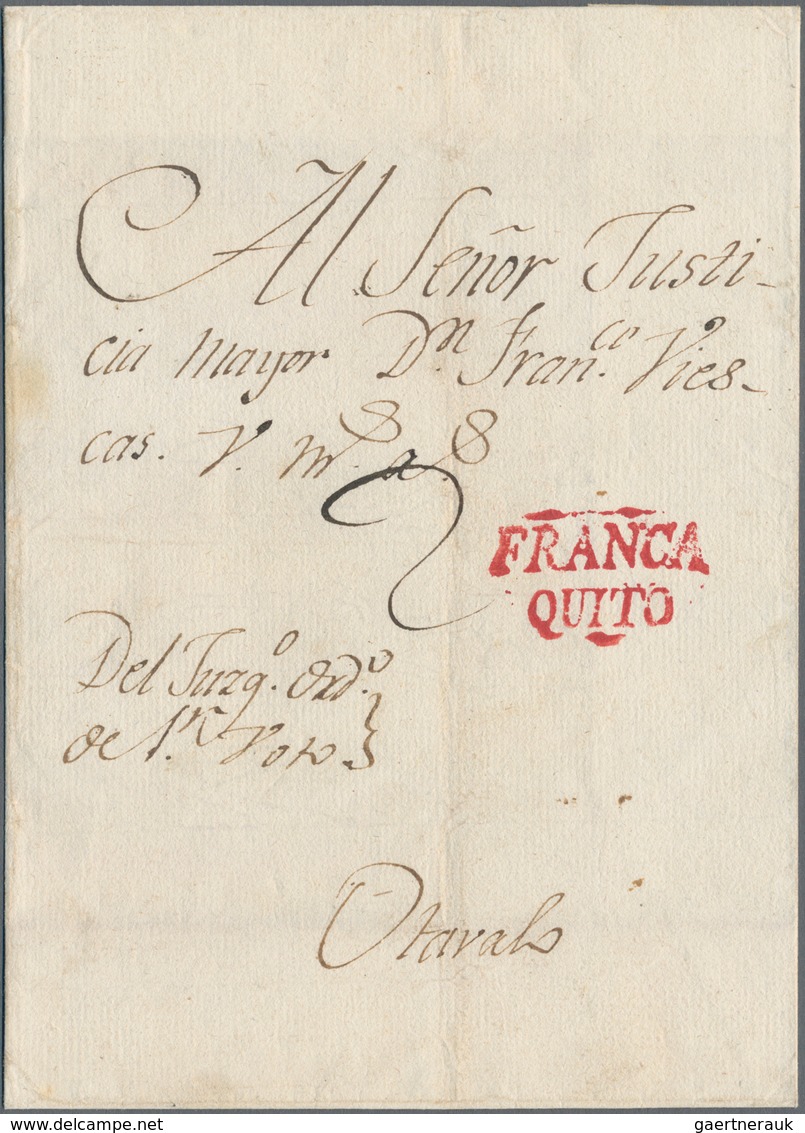 Al Señor Justi-
cia mayor Dn. Franco. Vies-
cas. V. ms. as.
2
FRANCA
QUITO
Del Juzgo. Ordo.
de 1r. Voto
Otavalo
delcampe.net
gaertnerauk